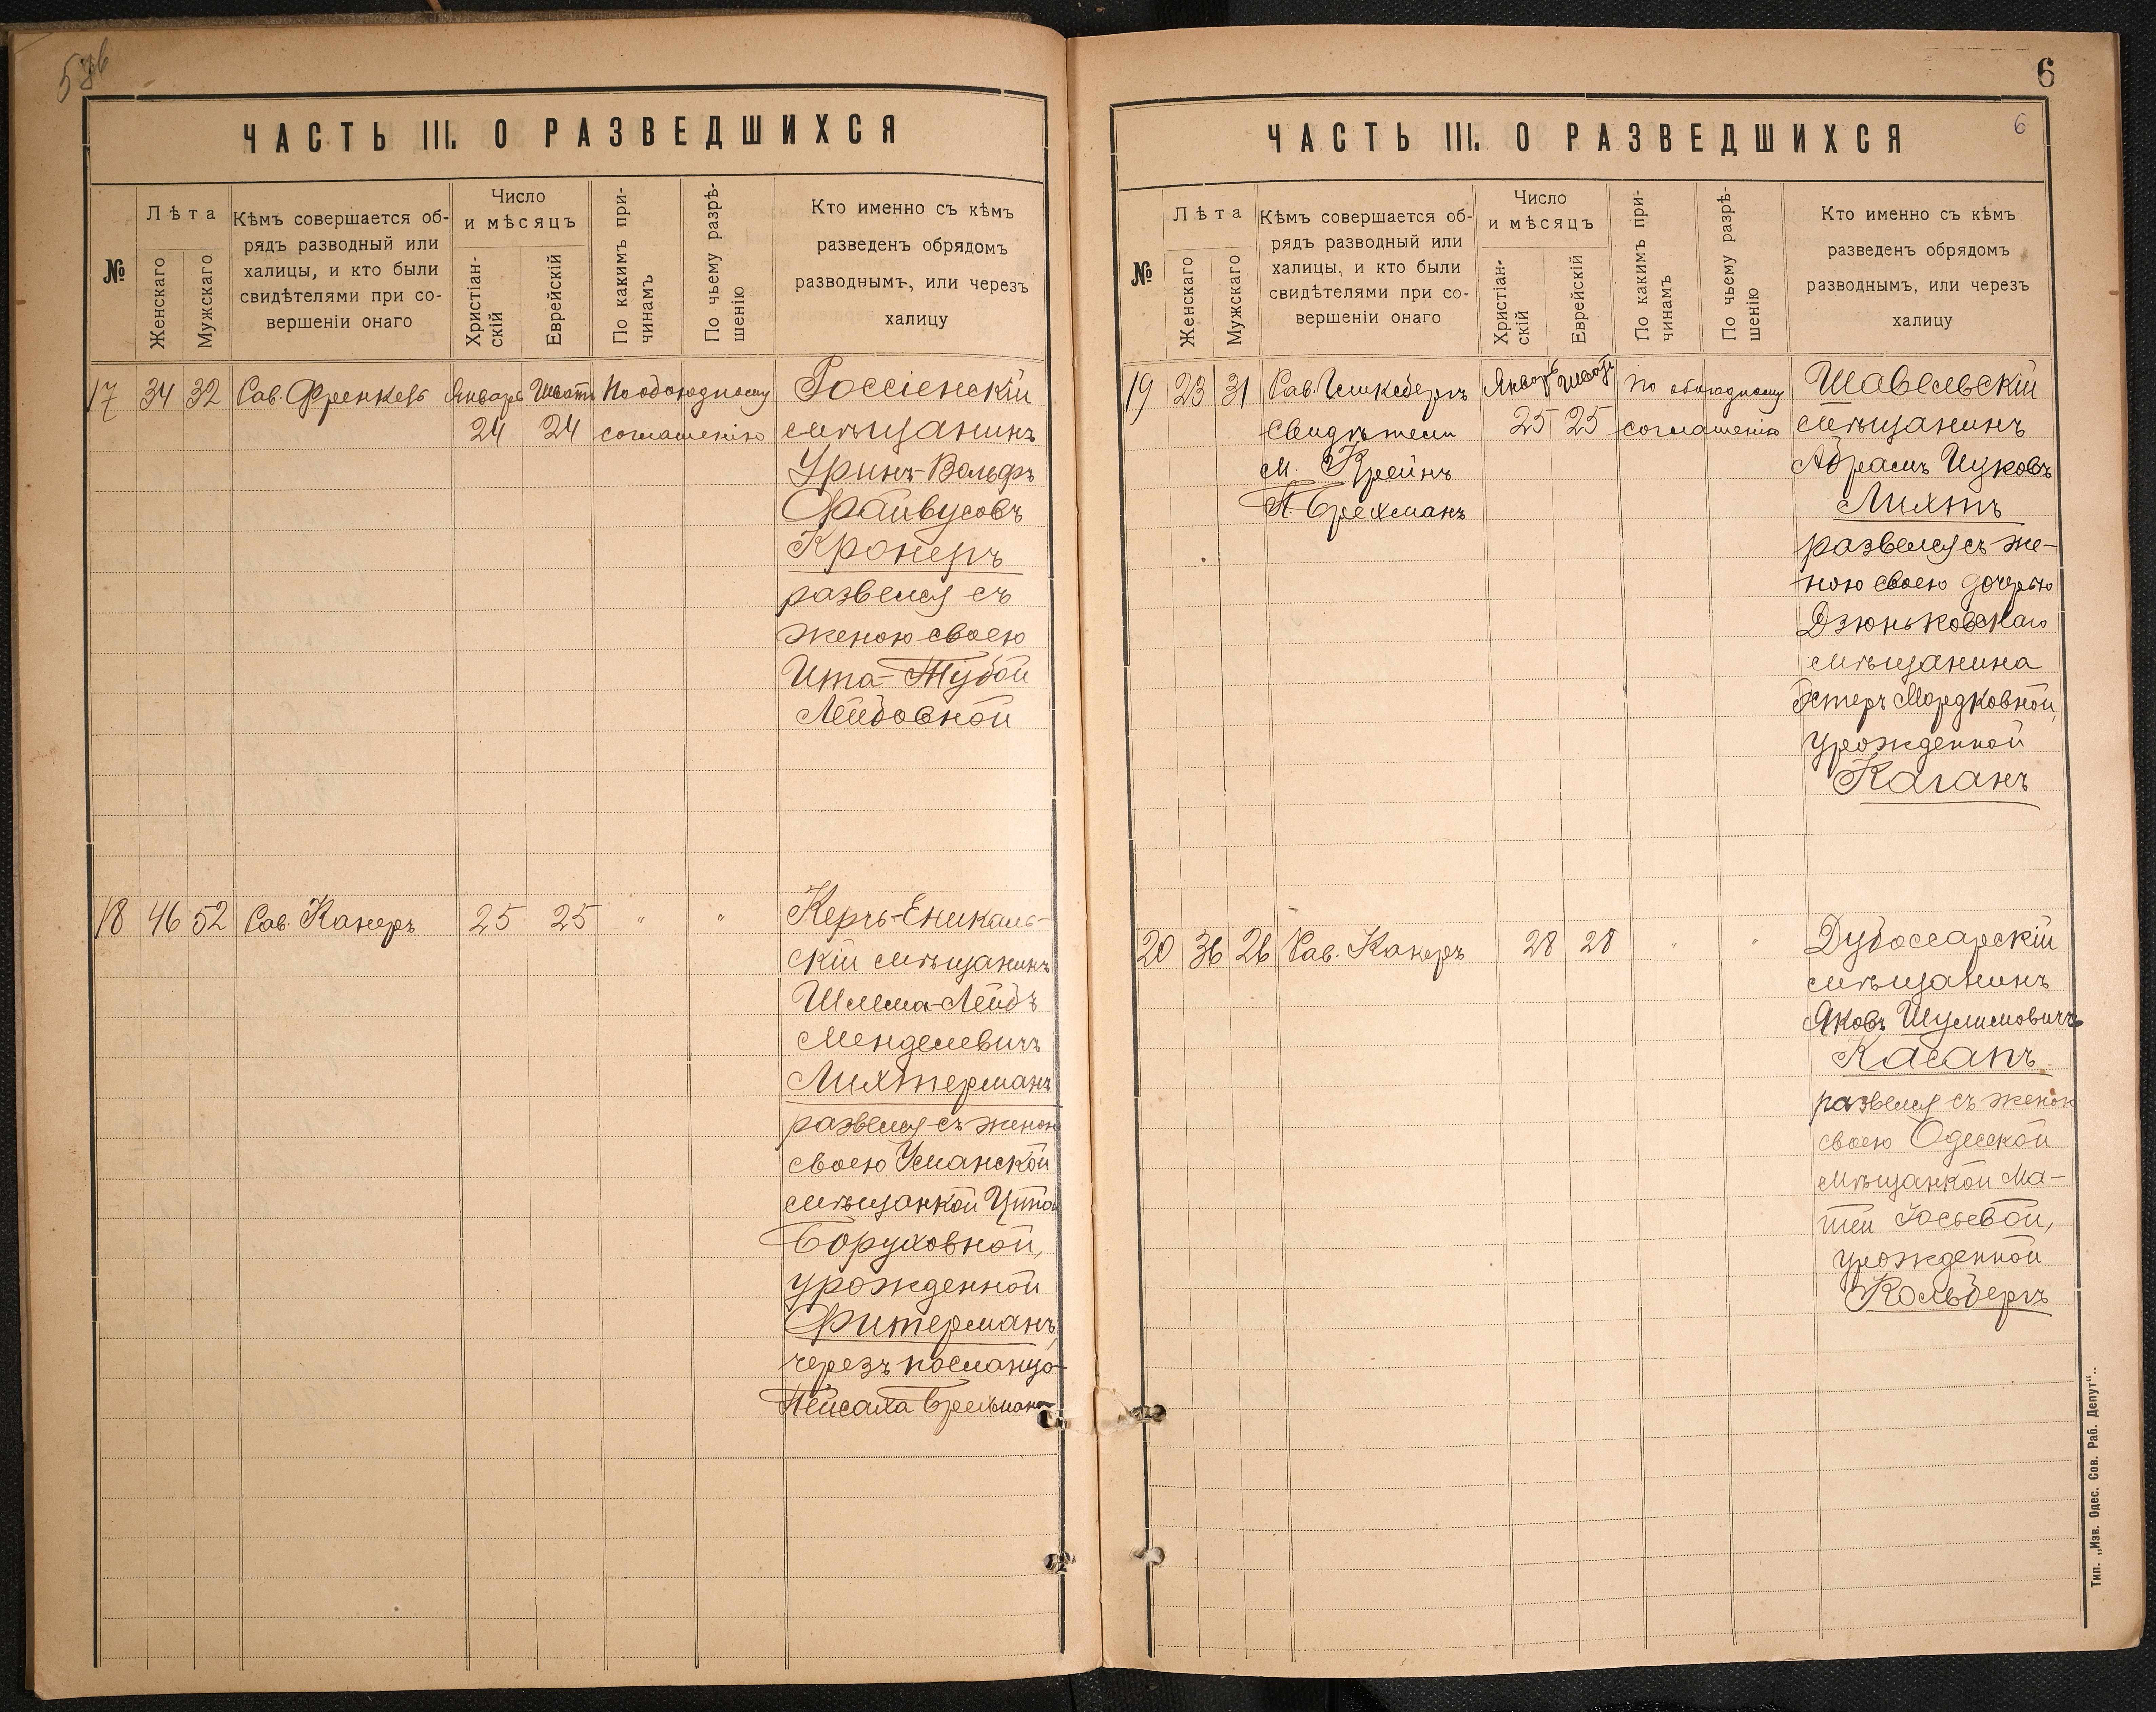 ЧАСТЬ III. О РАЗВЕДШИХСЯ
№
Лѣта
Женскаго
Мужскаго
Кѣмъ совершается об-
рядъ разводный или
халицы, и кто были
свидѣтелями при со-
вершеніи онаго
Число
и мѣсяцъ
Христіан-
скій
Еврейскій
По какимъ при-
чинамъ
По чьему разрѣ-
шенію
Кто именно съ кѣмъ
разведенъ обрядомъ
разводнымъ, или черезъ
халицу
17 34 32 Рав. Френкель Январь Шватъ По обоюдному
24 24 соглашенію
Россіенскій
мѣщанинъ
Уринъ-Вольфъ
Файвусовъ
Кронеръ
развелся съ
женою своею
Ита-Тубой
Лейбовной
18 46 52 Рав. Канеръ 25 25 " "
Керчь-Еникаль-
скій мѣщанинъ
Шлема-Лейбъ
Менделевичъ
Лихтерманъ
развелся съ женою
своею Уманской
мѣщанкой
Боруховной,
урожденной
Фитерманъ,
черезъ посланца
Пейсаха Брехмана
6
ЧАСТЬ III. О РАЗВЕДШИХСЯ
6
№
Лѣта
Женскаго
Мужскаго
Кѣмъ совершается об-
рядъ разводный или
халицы, и кто были
свидѣтелями при со-
вершеніи онаго
Число
и мѣсяцъ
Христіан-
скій
Еврейскій
По какимъ при-
чинамъ
По чьему разрѣ-
шенію
Кто именно съ кѣмъ
разведенъ обрядомъ
разводнымъ, или черезъ
халицу
19 23 31 Рав. Январь Шватъ по обоюдному
25 25 соглашенію
свидѣтели
М. Крейнъ
П. Брехманъ
Шавельскій
мѣщанинъ
Абрамъ Ицковъ
Лихтъ
развелся съ же-
ною своею дочерью
Дзюньковскаго
мѣщанина
Эстеръ Мордковной,
урожденной
Каганъ
20 36 26 Рав. Канеръ 28 28 " "
Дубоссарскій
мѣщанинъ
Яковъ Шулимовичъ
Касапъ
развелся съ женою
своею Одесской
мѣщанкой Ма-
Іосьевой,
урожденной
Кольбергъ
Тип. „Изв. Одес. Сов. Раб. Депут“.